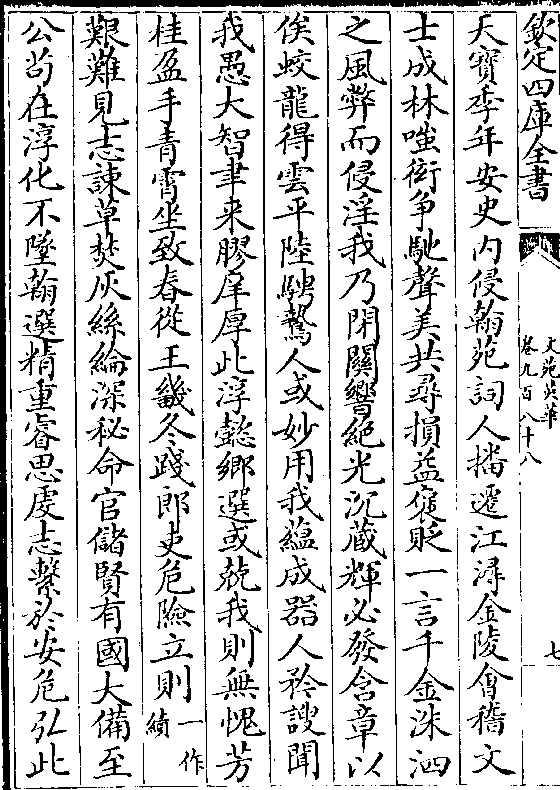 欽定四庫全書
文苑英華
卷九百八十八
七
天寶季年安史内侵翰苑詞人播遷江潯金陵會稽文
士成林嗤衒争馳聲美共尋損益褒貶一言千金洙泗
之風弊而侵淫我乃閉關響絶光沉藏輝必發含章以
俟蛟龍得雲平陸騁鶩人或妙用我蘊成器人矜謏聞
我愚大智聿来膠庠厚此淳懿鄉選或兢我則無愧芳
桂盈手青霄坐致春從王畿冬踐郎吏危險立則一作績
艱難見志諫草焚灰絲綸深秘命官儲賢有國大備至
公茍在淳化不墜翰選精重睿思處志繫於安危弘此